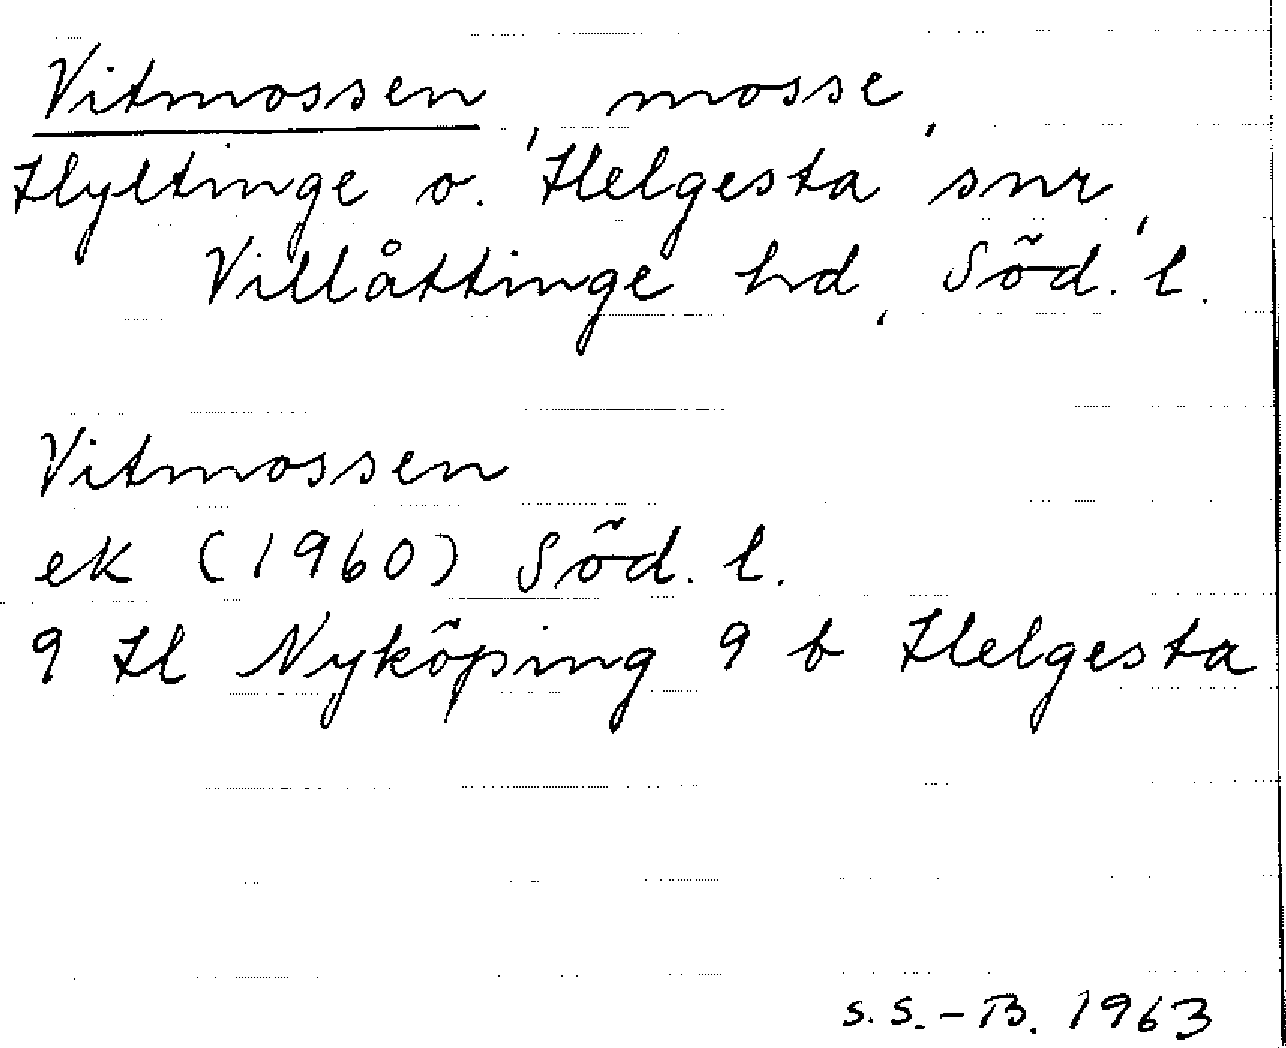 Vitmossen, mosse,
Hyltinge o. Helgesta snr,
Villåttinge hd, Söd. l.
Vitmossen
ek (1960) Söd. l.
9 H Nyköping 9 b Helgesta
S.S.-B. 1963